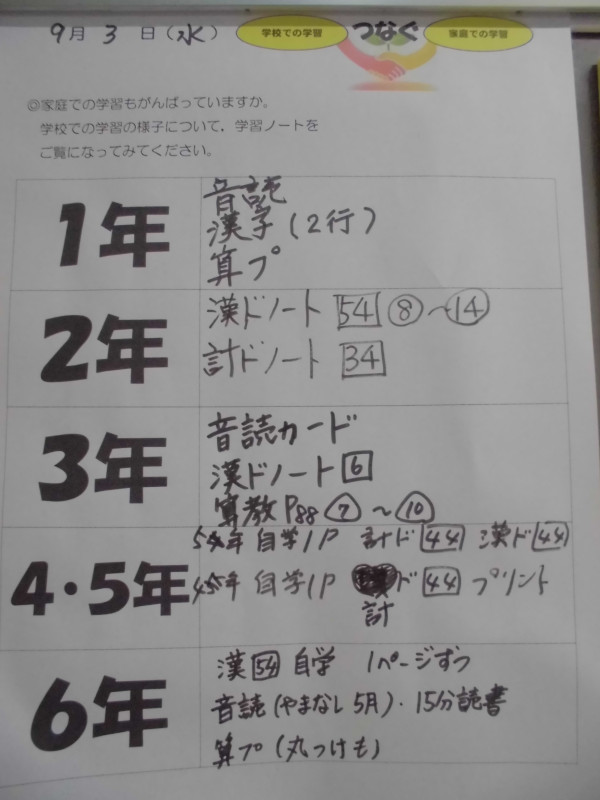 9月 3 日(水)
学校での学習 つなぐ 家庭での学習
◎家庭での学習もがんばっていますか。
学校での学習の様子について、学習ノートを
ご覧になってみてください。
1年
音読
漢字(2行)
算プ
2年
漢ドノート 54 ⑧〜⑭
計ドノート 34
3年
音読カード
漢ドノート 6
算教 P88 ⑦ 〜 ⑩
4・5年
年 自学1P 計ド 44 漢ド 44
年 自学1P ド 44 プリント
計
6年
漢 54 自学 1ページずつ
音読(やまなし 5月)・15分読書
算プ(丸つけも)